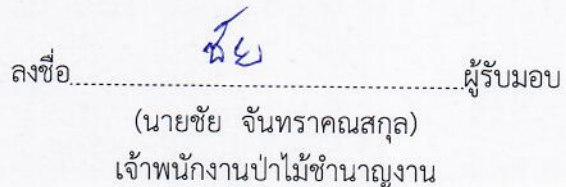 ลงชื่อ ชัย ผู้รับมอบ
(นายชัย จันทราคณสกุล)
เจ้าพนักงานป่าไม้ชำนาญงาน